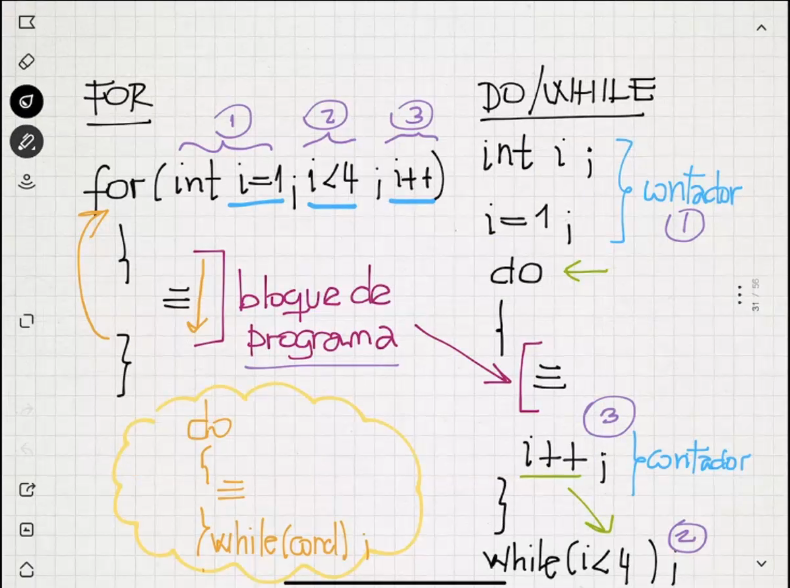 FOR
1 2 3
for(int i=1; i<4; i++)
{
bloque de
programa
}
do
{
}while(cond);
DO/WHILE
int i;
i=1;
contador
1
do
{
3
i++;
contador
}
while(i<4);
2
31 / 56